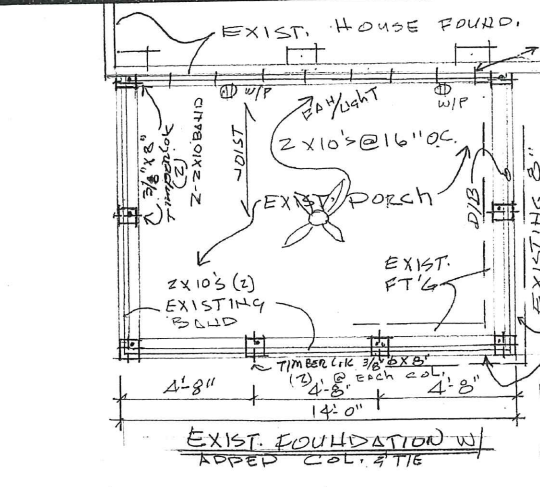 EXIST. HOUSE FOUND.
W/P
FAN/LIGHT
W/P
3/8" X 8"
TIMBERLOK
(2)
2-2X10 BAND
JOIST
2 X10'S @ 16" O.C.
EXIST. PORCH
D/B
EXISTING 8"
2X10'S (2)
EXISTING
BAND
EXIST.
FT'G
TIMBERLOK 3/8" Ø X 8"
(2) @ EACH COL.
4'-8"
4'-8"
4'-8"
14'-0"
EXIST. FOUNDATION W/
ADDED COL. & TIE